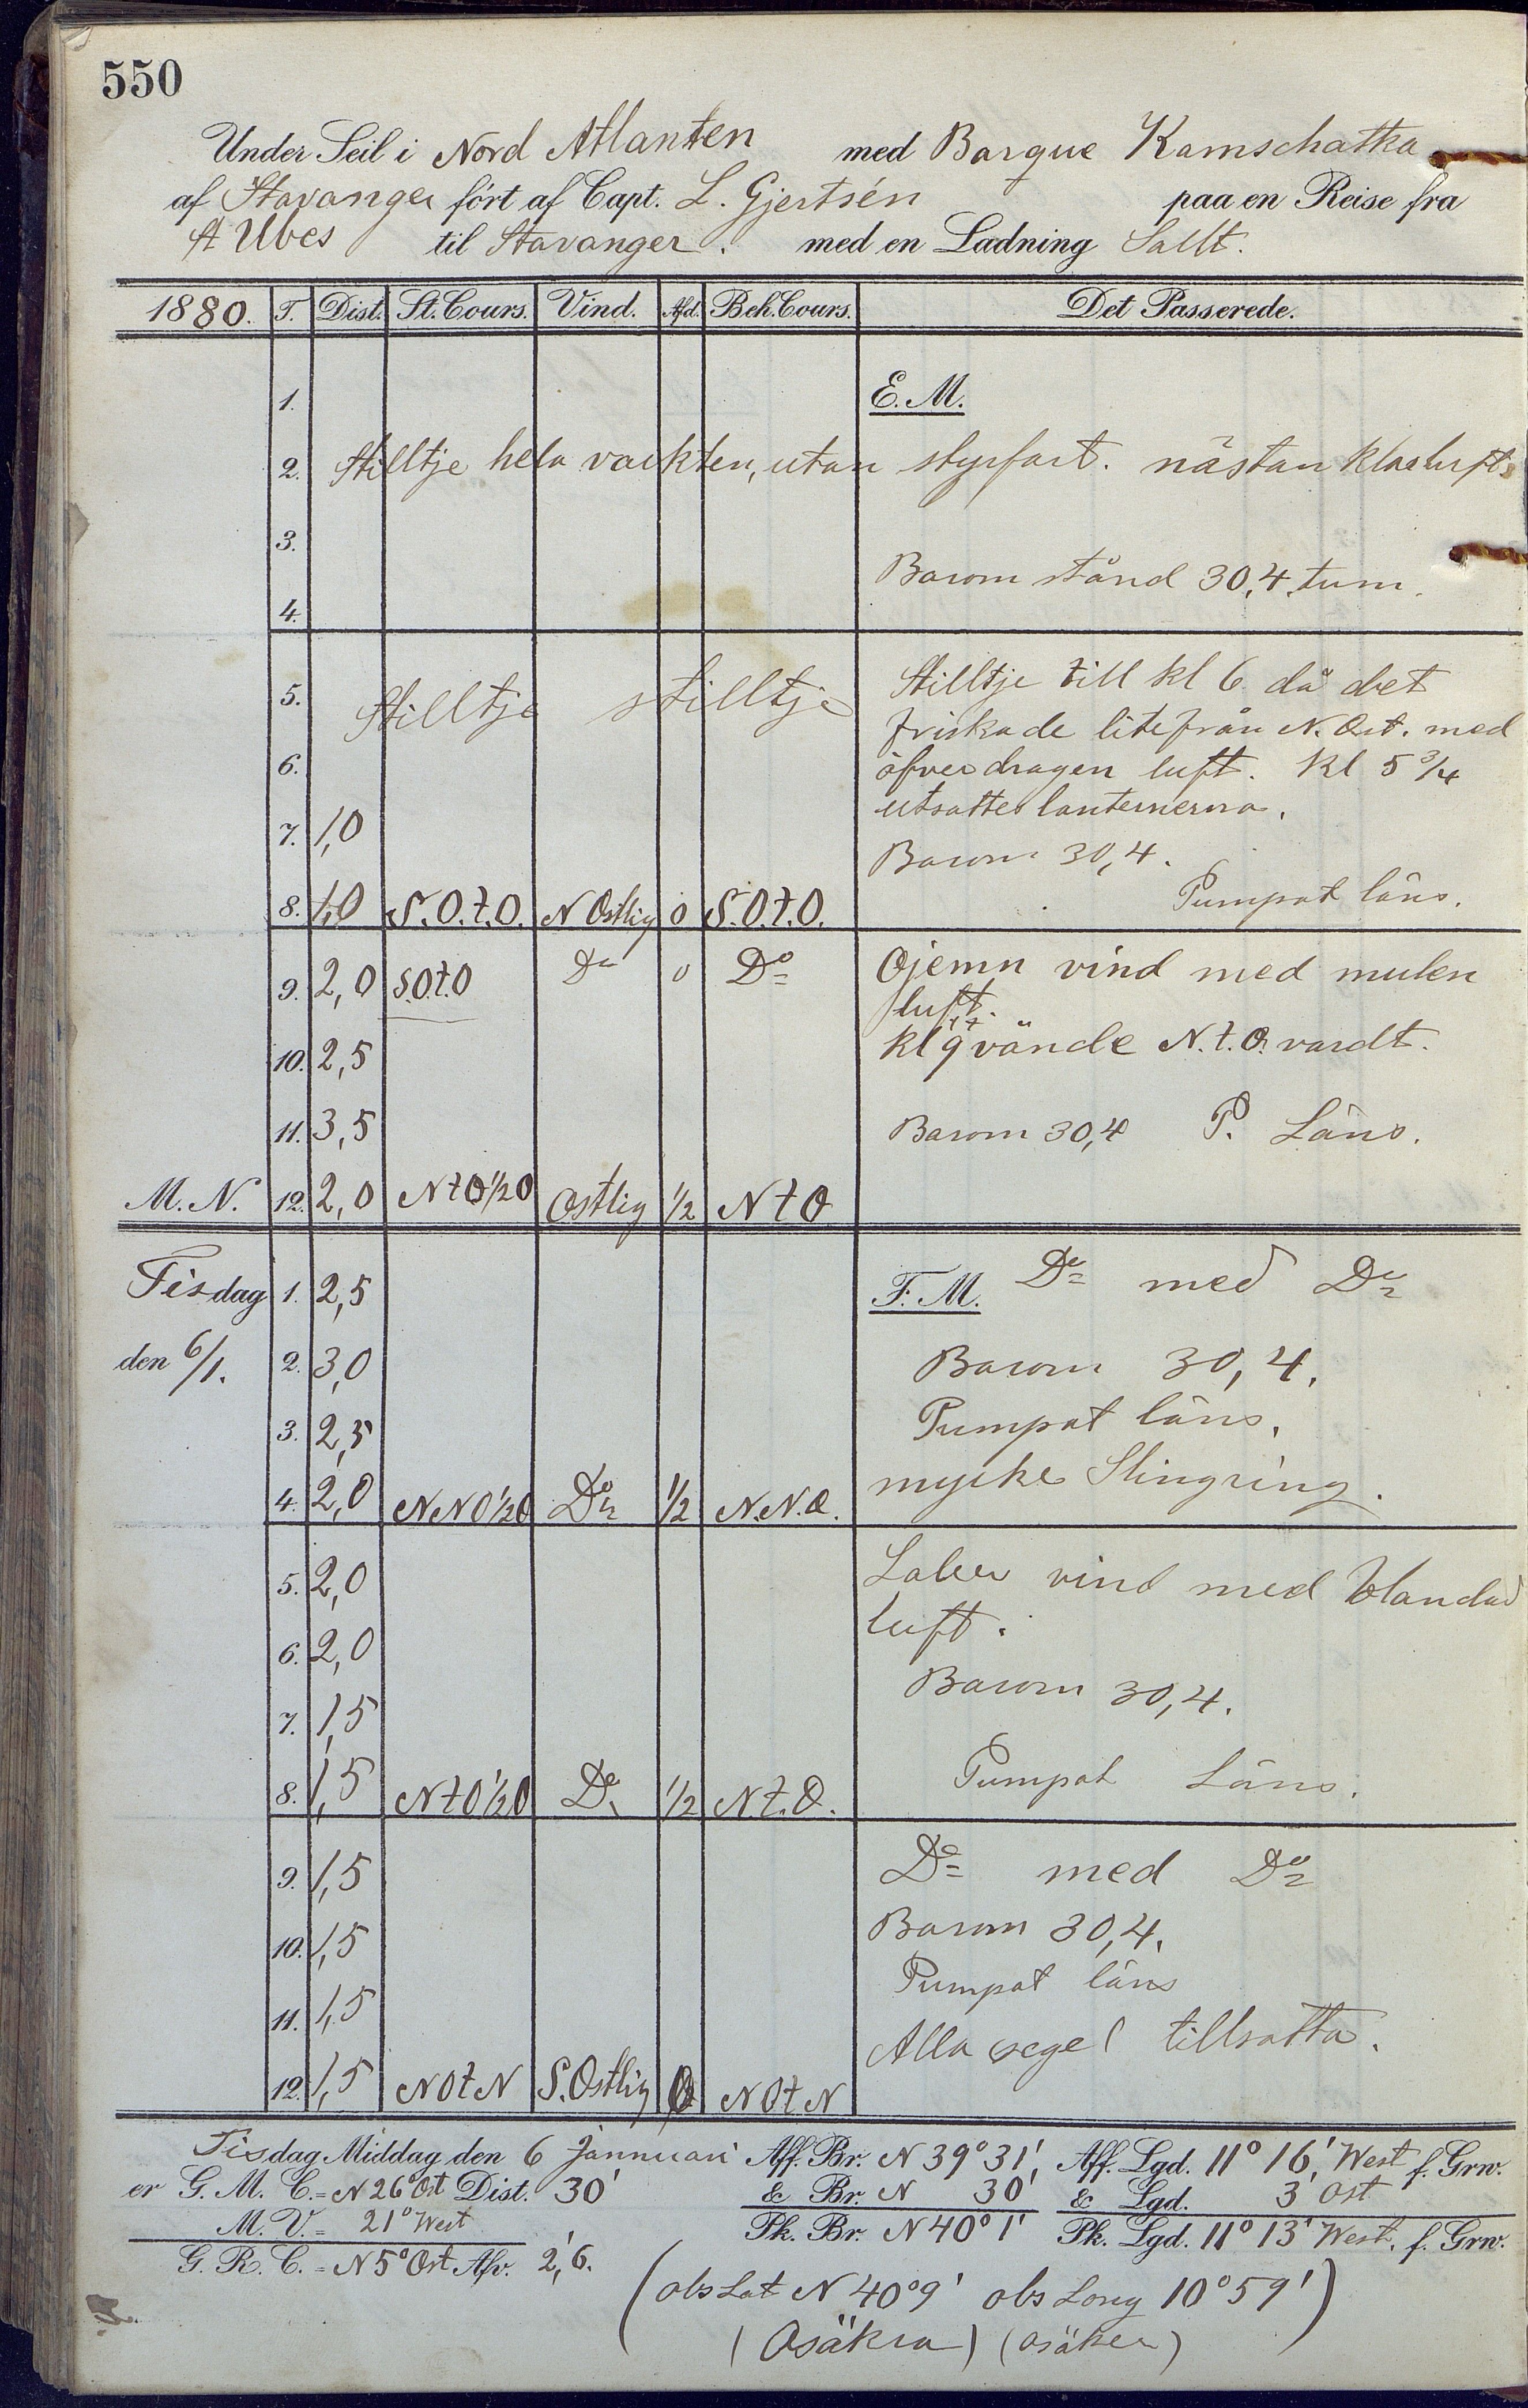 550
Under Seil i Nord Atlanten med Barque Kamschatka
af Stavanger fört af Capt. L. Gjertsén paa en Reise fra
St Ubes til Stavanger. med en Ladning Sallt.
1880. T. Dist. St. Cours. Vind. Afd. Beh. Cours. Det Passerede.
1. E. M.
2. Stilltje hela vackten, utan styrfart. nästan klar luft.
3.
Barom stånd 30,4. tum.
4.
5. Stilltje stilltje Stilltje till kl 6 då det
friskade lite från N. Ost. med
6. öfverdragen luft. Kl 5 3/4
utsattes lanternerna.
7. 1,0
Barom 30,4.
8. 1,0 S.O.t.O. N Ostlig 0 S.O.t.O. Pumpat läns.
9. 2,0 S.O.t.O Do 0 Do Ojemn vind med mulen
luft.
10. 2,5 kl 9 vände N.t.O. vardt.
11. 3,5 Barom 30,4 P. Läns.
M. N. 12. 2,0 NtO1/2O Ostlig 1/2 N t O
Tisdag 1. 2,5 F. M. Do med Do
den 6/1. 2. 3,0 Barom 30,4.
3. 2,5 Pumpat läns.
4. 2,0 NNO1/2O Do 1/2 N.N.O. mycke Slingring.
5. 2,0 Laber vind med blandad
6. 2,0 luft.
7. 1,5 Barom 30,4.
8. 1,5 NtO1/2O Do 1/2 N.t.O. Pumpat Läns.
9. 1,5 Do med Do
10. 1,5 Barom 30,4.
11. 1,5 Pumpat läns
Alla segel tillsatta.
12. 1,5 NOtN S.Ostlig 0 NOtN
Tisdag Middag den 6 Jannuari Aff. Br. N 39° 31', Aff. Lgd. 11° 16,' West f. Grw.
er G. M. C. = N 26° Ost Dist. 30' & Br. N 30' & Lgd. 3 Ost
M. V. = 21° West Pk. Br. N 40° 1' Pk. Lgd. 11° 13' West. f. Grw.
G. R. C. = N 5° Ost Afv. 2,'6.
(obs Lat N 40° 9' obs Long 10° 59')
(Osäkra) (osäker)